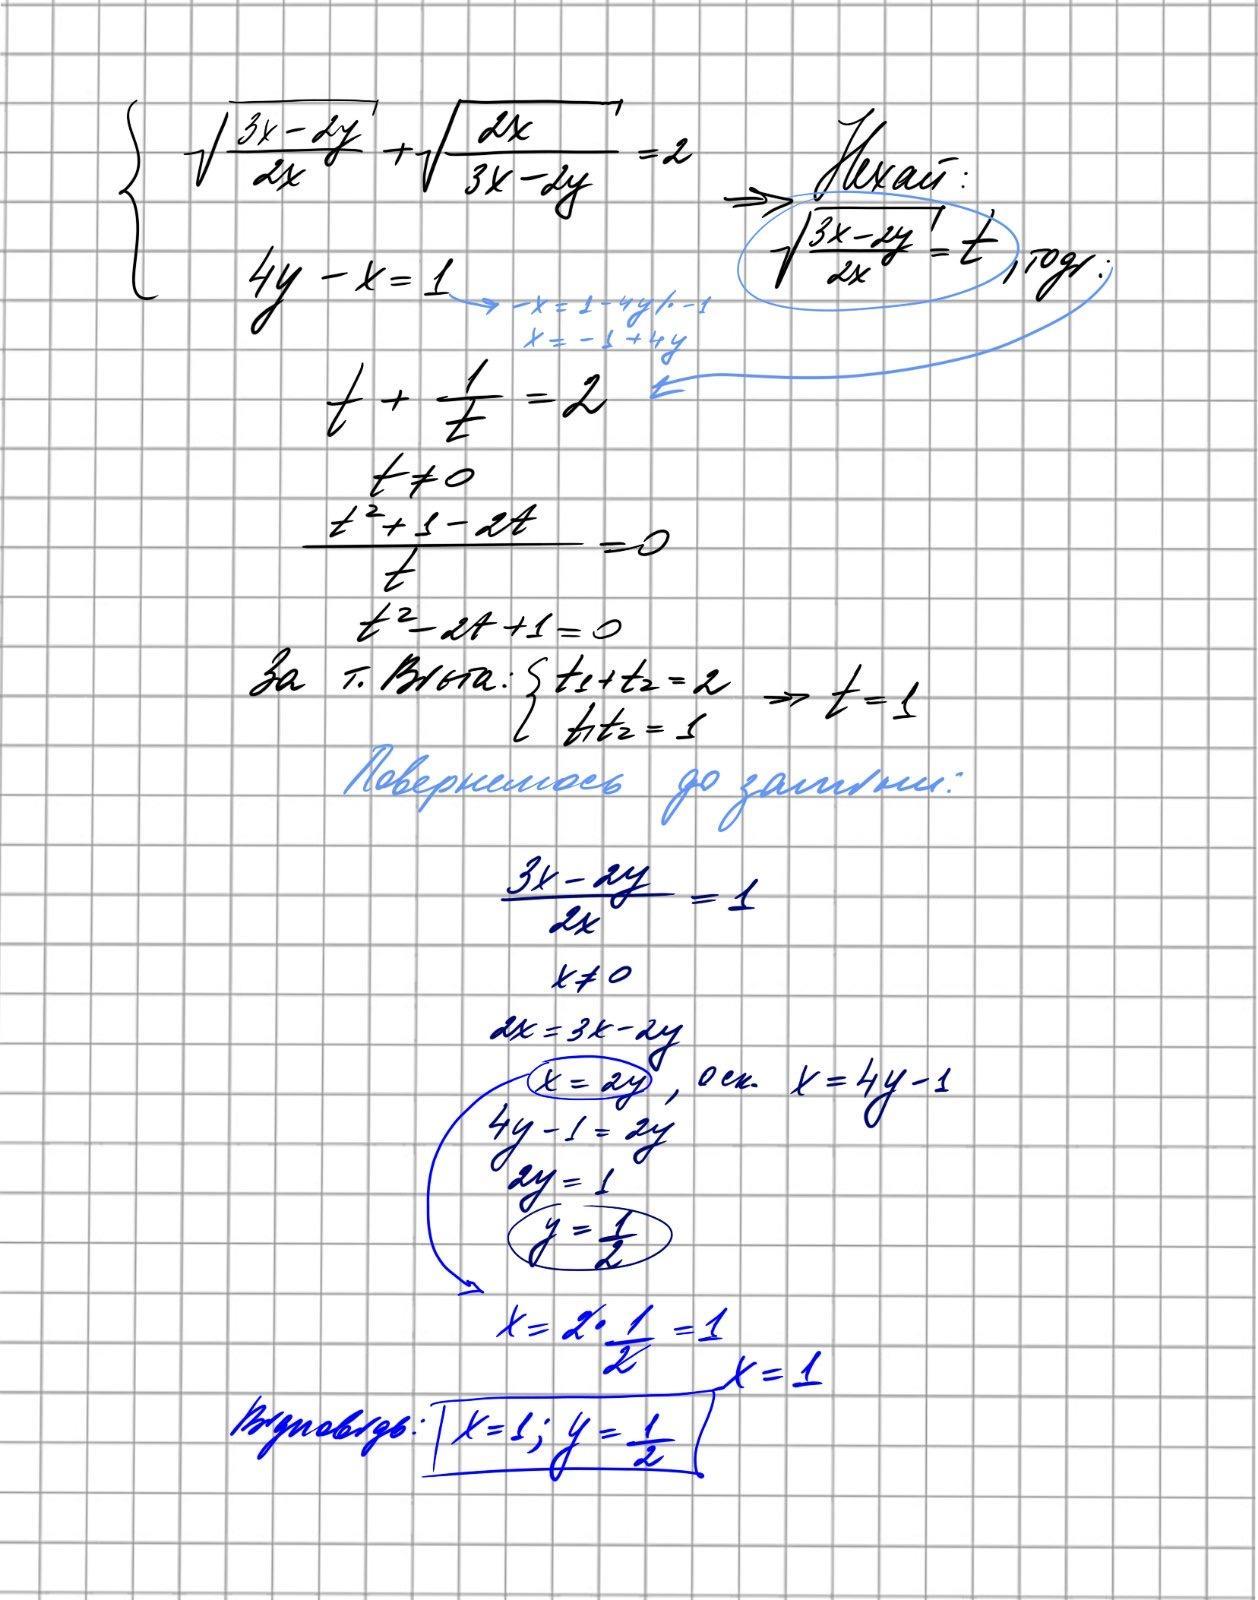 { √((3x-2y)/(2x)) + √((2x)/(3x-2y)) = 2
4y - x = 1
⇒ Нехай:
√((3x-2y)/(2x)) = t, тоді:
→ -x = 1-4y /· -1
x = -1+4y
t + 1/t = 2
t ≠ 0
(t²+1-2t)/t = 0
t²-2t+1=0
За т. Вієта: { t₁+t₂=2
t₁t₂=1
⇒ t=1
Повернемось до заміни:
(3x-2y)/(2x) = 1
x≠0
2x=3x-2y
x=2y, оск. x=4y-1
4y-1=2y
2y=1
y=1/2
x=2·1/2=1
x=1
Відповідь: x=1; y=1/2